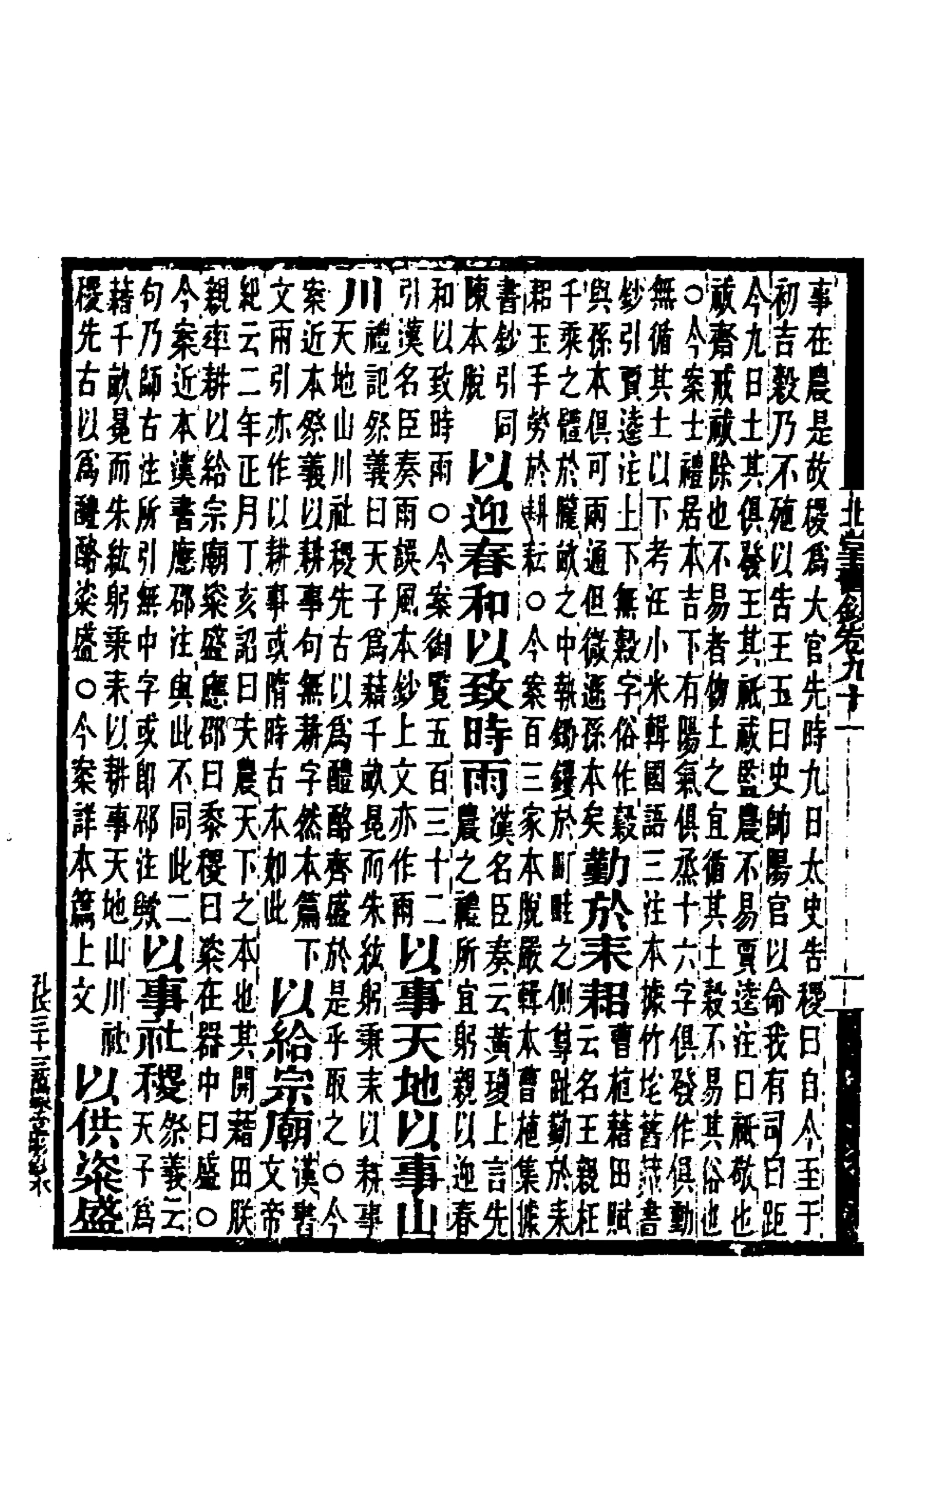 北堂書鈔卷九十一
事在農是故稷爲大官先時九日太史告稷曰自今至于
初吉穀乃不殖以告王王曰史帥陽官以命我有司曰距
今九日土其俱發王其祗祓監農不易賈逵注曰祗敬也
祓齋戒祓除也不易者物土之宜循其土穀不易其俗也
○今案士禮居本吉下有陽氣俱烝十六字俱發作俱動
無循其土以下考汪小米輯國語三注本據竹垞舊藏書
鈔引賈逵注上下無穀字俗作穀
與孫本俱可兩通但微遜孫本矣
勤於耒耜
曹植藉田賦
云名王親枉
千乘之體於隴畝之中執鋤钁於町畦之側尊趾勤於耒
耜玉手勞於耕耘○今案百三家本脫嚴輯本曹植集據
書鈔引同
陳本脫
以迎春和以致時雨
漢名臣奏云黃瓊上言先
農之禮所宜躬親以迎春
和以致時雨○今案御覽五百三十二
引漢名臣奏雨誤風本鈔上文亦作雨
以事天地以事山
川
禮記祭義曰天子爲藉千畝冕而朱紘躬秉耒以耕事
天地山川社稷先古以爲醴酪齊盛於是乎取之○今
案近本祭義以耕事句無耕字然本篇下
文兩引亦作以耕事或隋時古本如此
以給宗廟
漢書
文帝
紀云二年正月丁亥詔曰夫農天下之本也其開藉田朕
親率耕以給宗廟粢盛應邵曰黍稷曰粢在器中曰盛○
今案近本漢書應邵注與此不同此二
句乃師古注所引無中字或即邵注歟
以事社稷
祭義云
天子爲
藉千畝冕而朱紘躬秉耒以耕事天地山川社
稷先古以爲醴酪粢盛○今案詳本篇上文
以供粢盛
孔氏三十三萬卷堂